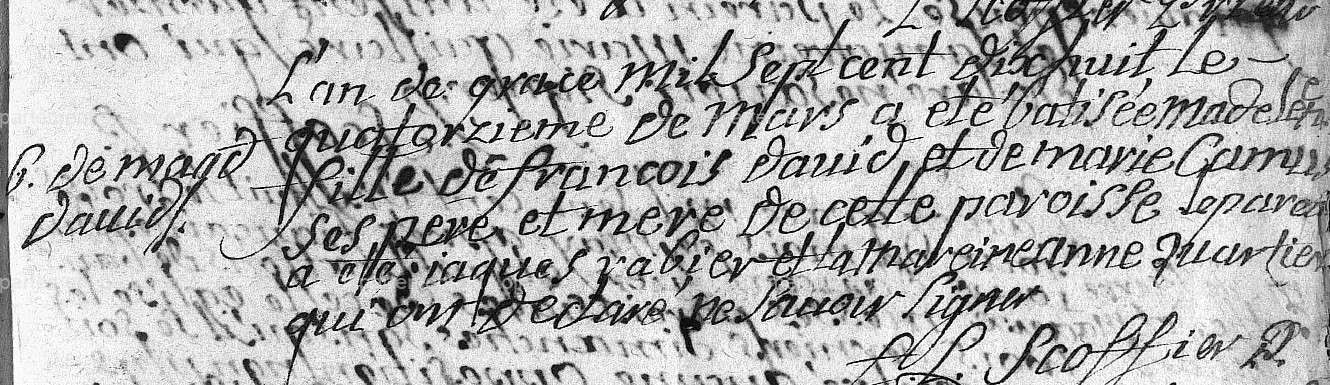 L'an de grace mil sept cent dix huit le
quatorzieme de Mars a eté batisée madelein
B. de magd
fille de francois dauid et de marie Camus
dauid
ses pere et mere de cette paroisse le parein
a eté iaques rabier et la mareine anne quartier
qui ont declaré ne sauoir signer
Scoffier